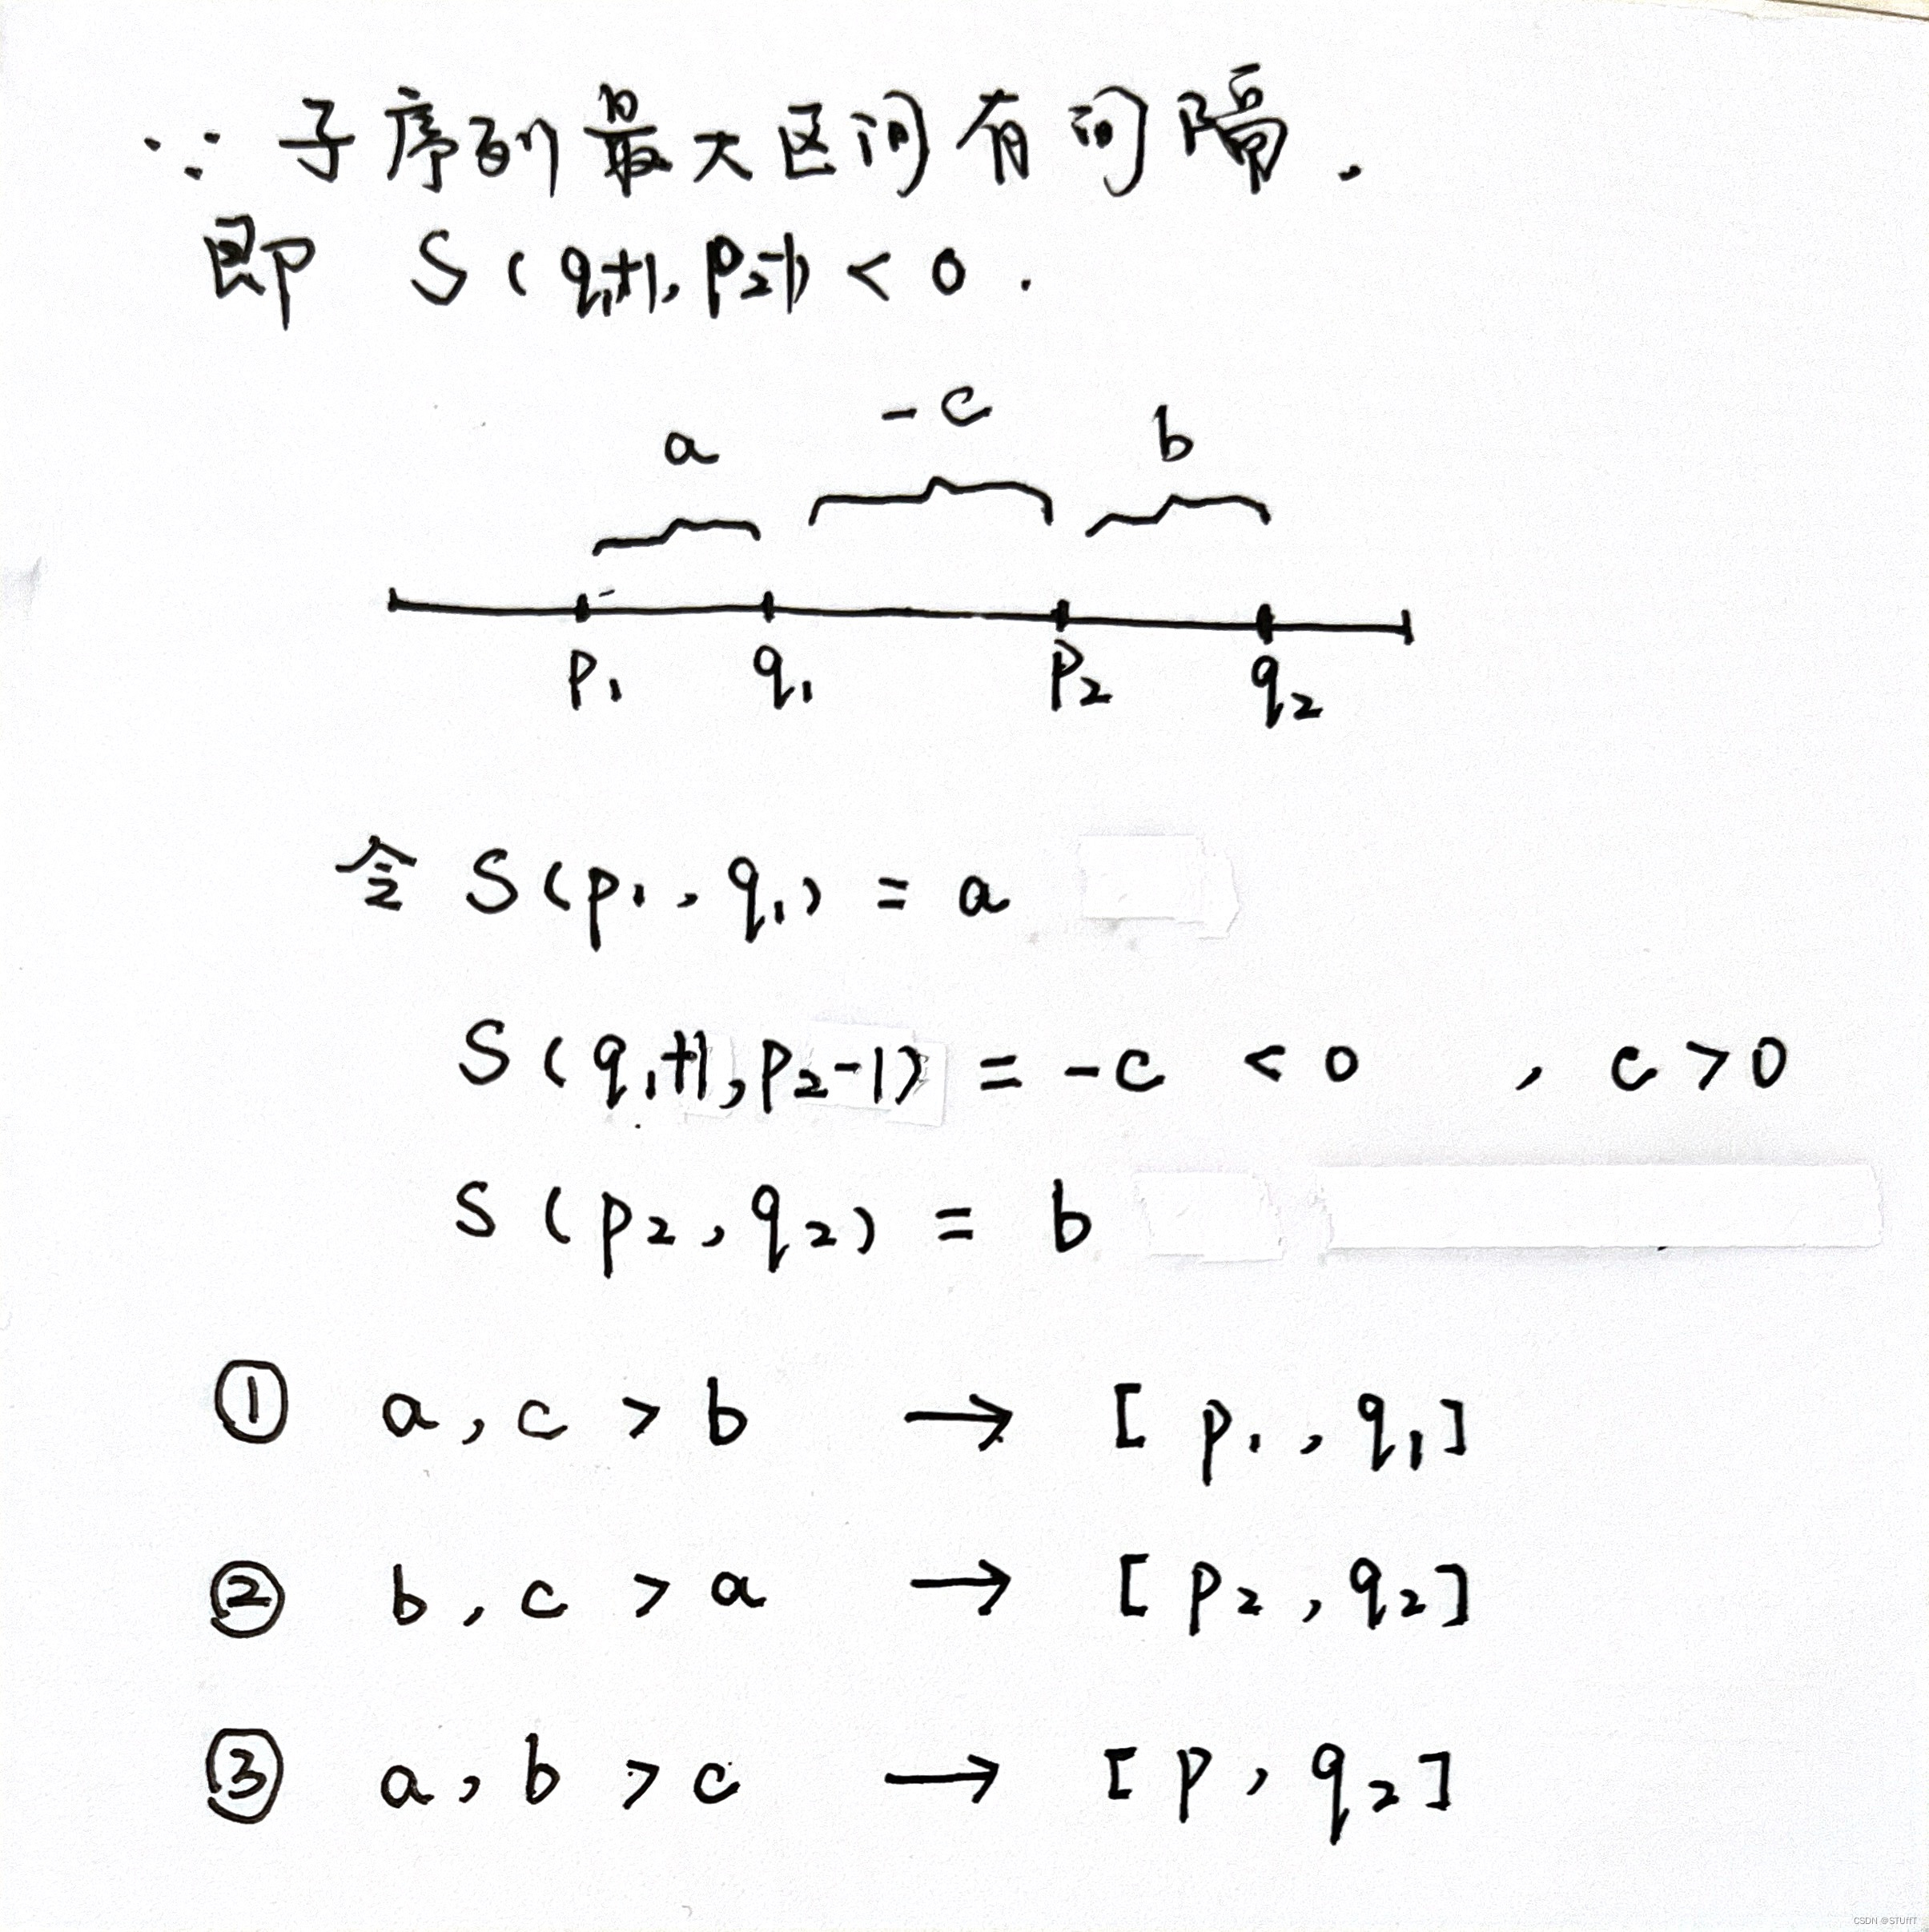 ∵ 子序列最大区间有间隔.
即 S(q₁+1, p₂-1) < 0.
a -c b
p₁ q₁ p₂ q₂
令 S(p₁, q₁) = a
S(q₁+1, p₂-1) = -c < 0 , c > 0
S(p₂, q₂) = b
① a, c > b → [p₁, q₁]
② b, c > a → [p₂, q₂]
③ a, b > c → [p, q₂]
CSDN @STUffT